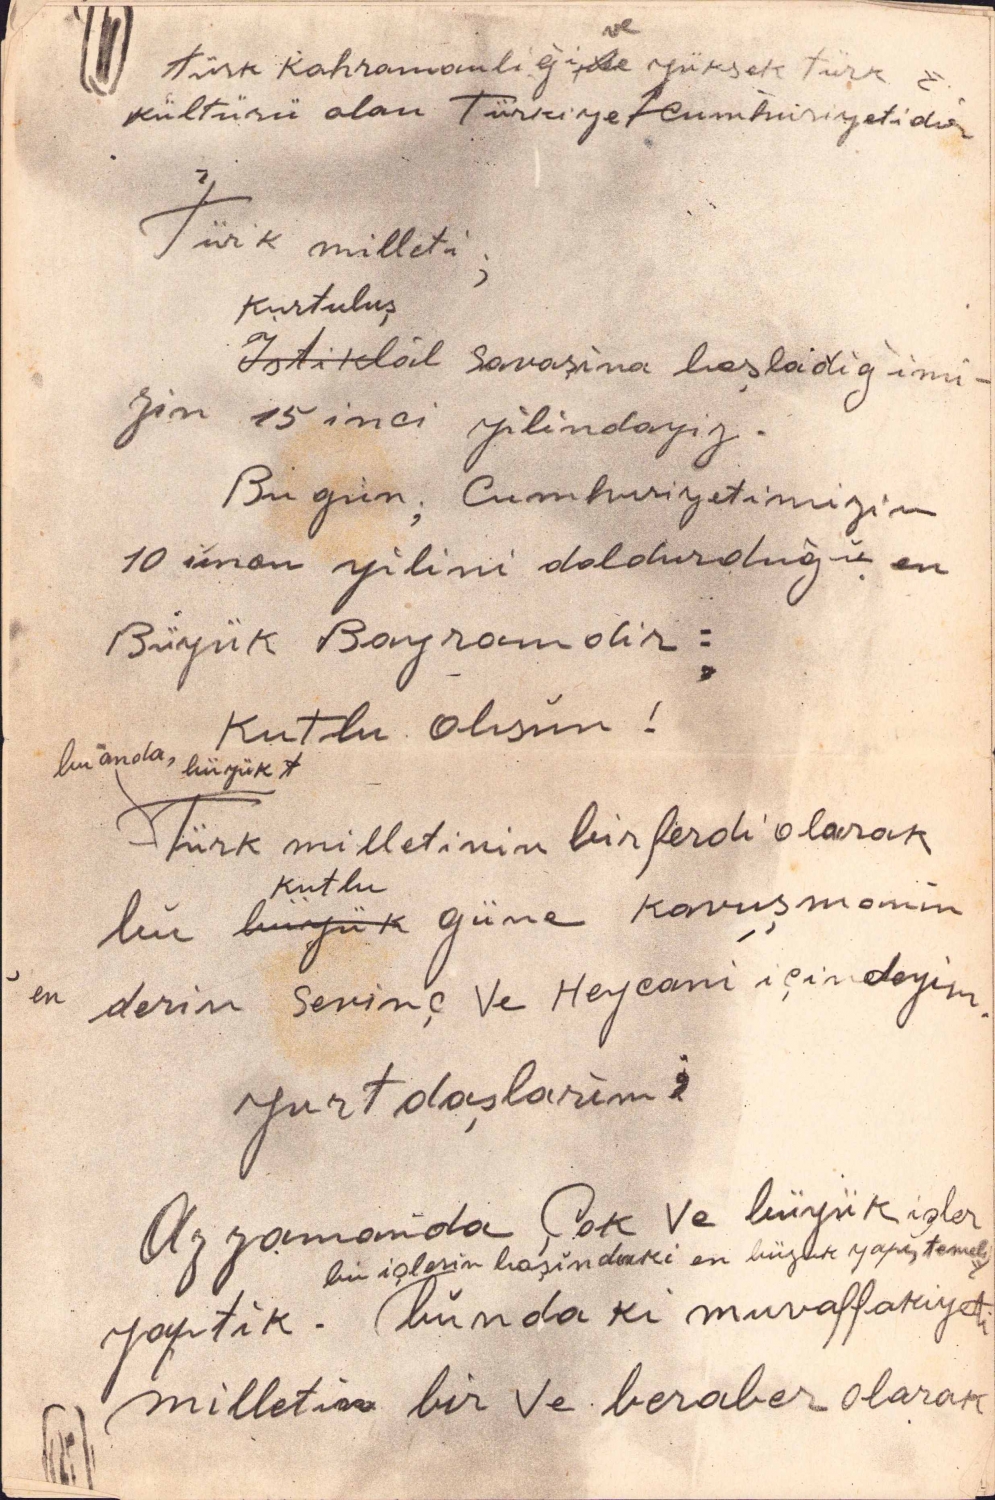 ve
türk kahramanlığı, yüksek türk
kültürü olan Türkiye Cumhuriyetidir
Türk milleti;
Kurtuluş
İstiklâl Savaşına başladığımı-
zin 15 inci yılındayız.
Bu gün; Cumhuriyetimizin
10 uncu yılını doldurduğu en
Büyük Bayramdır;
Kutlu olsun!
bu anda, büyük t
Türk milletinin bir ferdi olarak
kutlu
bu büyük güne kavuşmanın
en derin Sevinç Ve Heycanı içindeyim.
yurtdaşlarım
Az zamanda Çok Ve büyük işler
bu işlerin başındaki en büyük yapış, temeli
yaptık. Bundaki muvaffakiyeti
milletin bir Ve beraber olarak